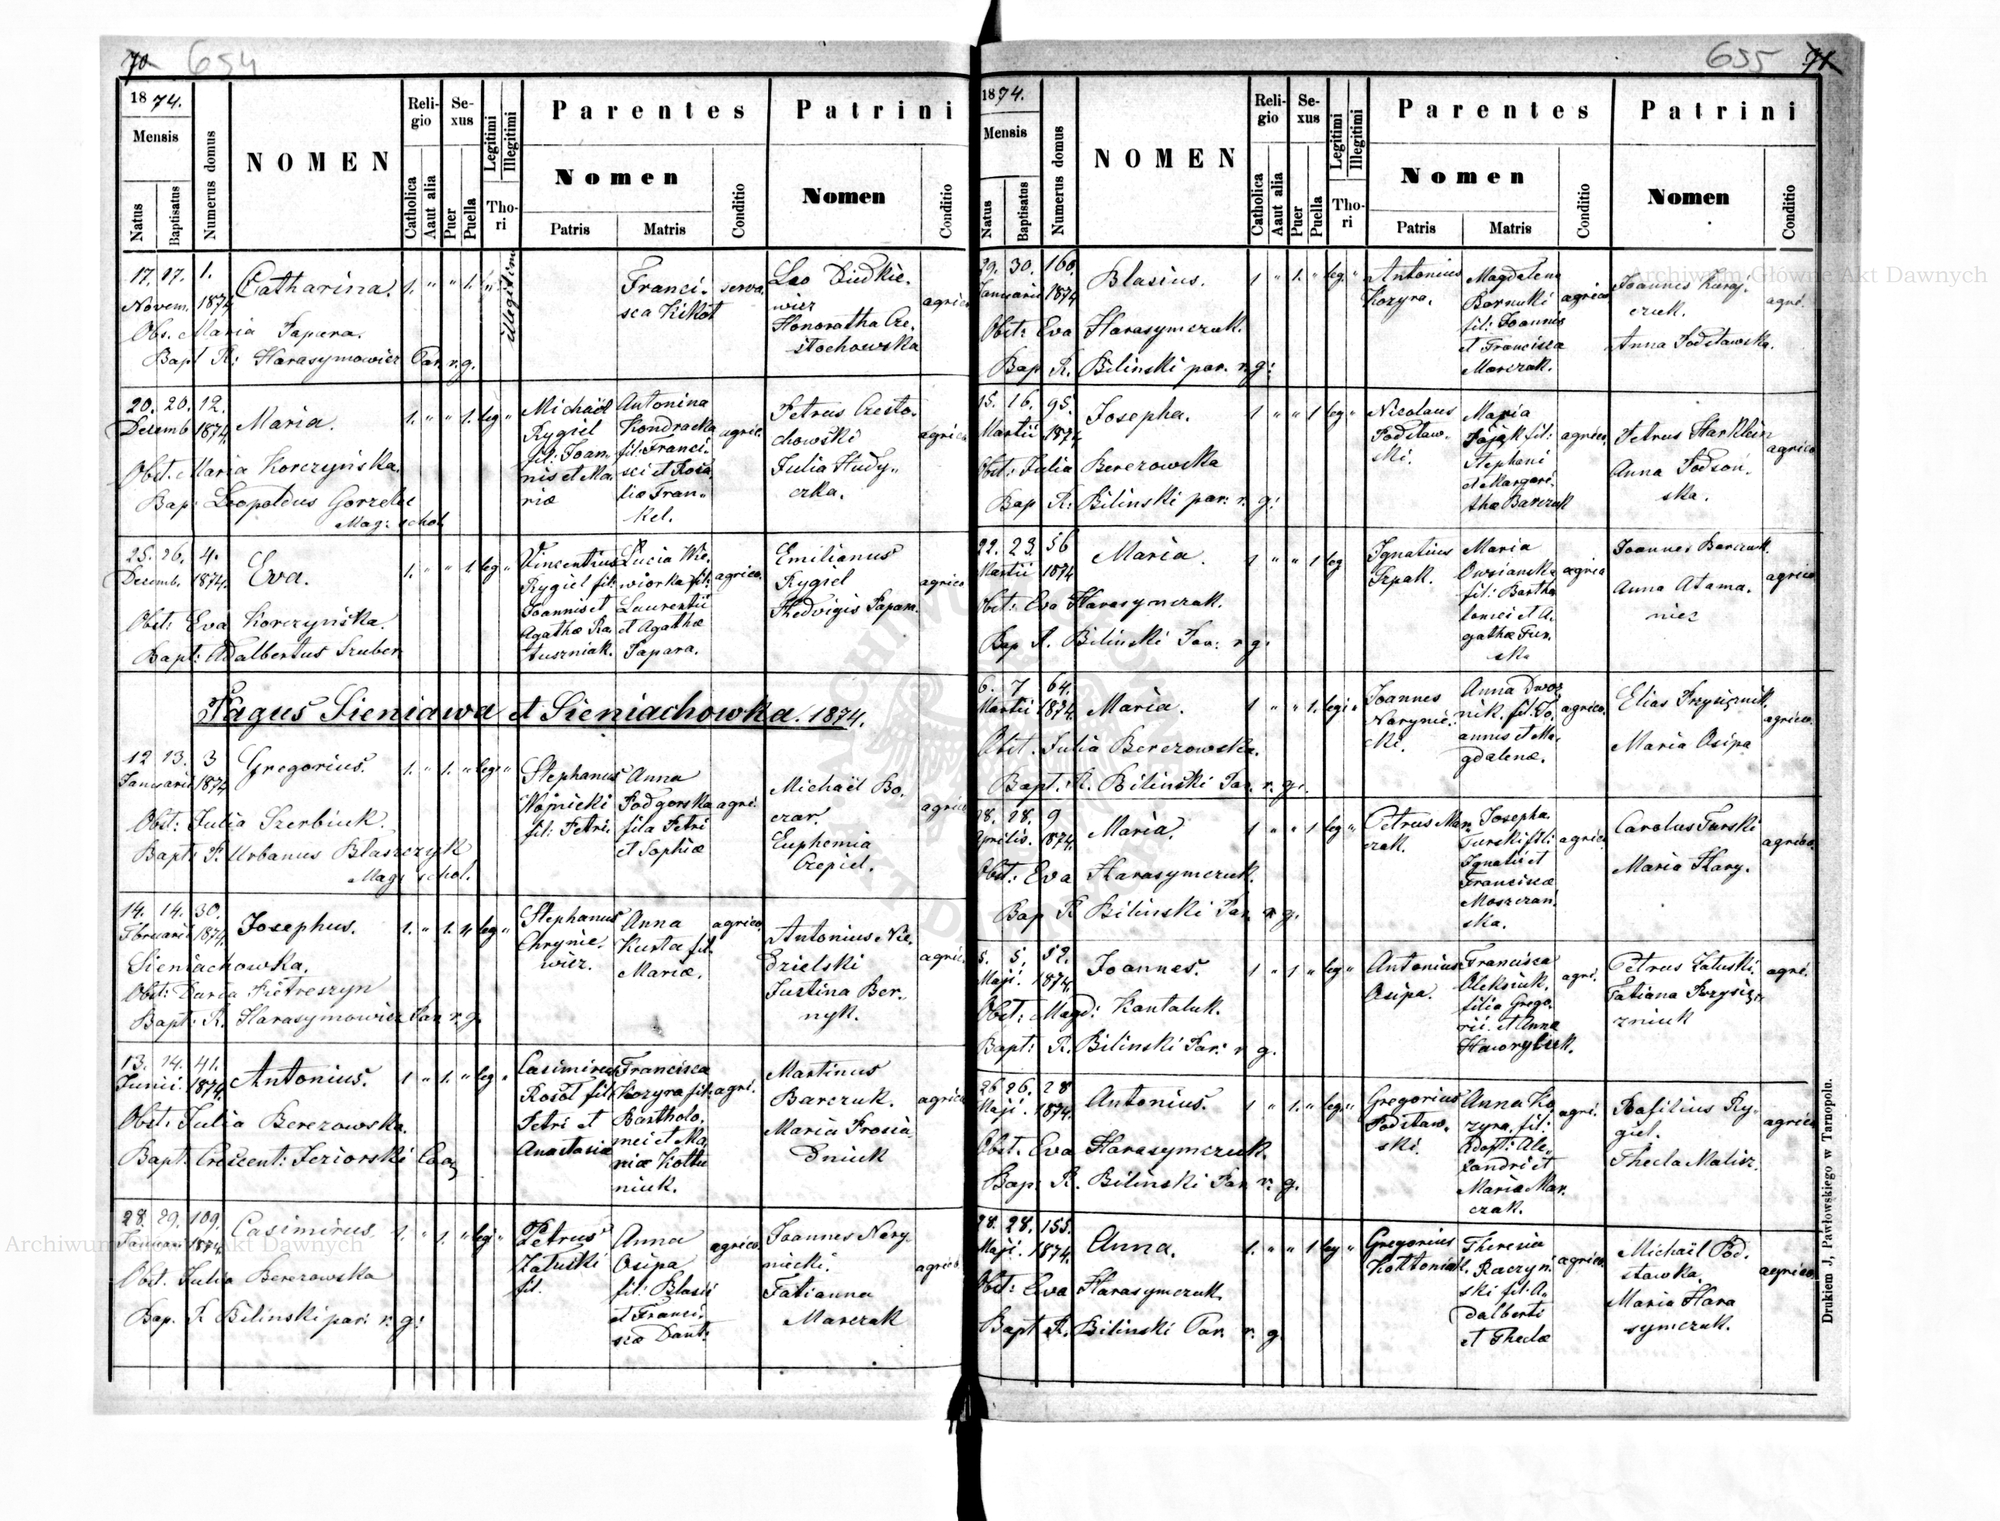 70 654
1874.
Mensis
Natus
Baptisatus
Numerus domus
NOMEN
Religio
Catholica
Aaut alia
Sexus
Puer
Puella
Legitimi
Illegitimi
Thori
Parentes
Nomen
Patris
Matris
Conditio
Patrini
Nomen
Conditio
17. 17. 1. Catharina. 1. " " 1. " illegitim Francisca Kikot serva. Leo Dudkiewicz agrico
Novem. 1874
Honoratha Czestochowska
Obs. Maria Papara.
Bapt R: Harasymowicz Par r. g.
20. 20. 12. Maria. 1. " " 1. leg " Michaël Rygiel fil: Joannis et Mariæ
Decemb 1874.
Antonina Kondracka fil: Francisci et Rosaliæ Frankel. agric.
Petrus Czestochowski agrico
Julia Hudyczka.
Obst. Maria Korczyńska.
Bap: Leopoldus Gorzelec
Mag: schol
25. 26. 4. Eva. 1. " " 1. leg " Vincentius Rygiel fil: Joannis et Agathæ Ratuszniak.
Decemb. 1874.
Lucia Wiewiorka fil: Laurentii et Agathæ Papara. agrico.
Emilianus Rygiel agrico
Hedvigis Papara.
Obst: Eva Korczyńska.
Bapt: Adalbertus Szuber
Pagus Sieniawa et Sieniachowka. 1874.
12 13. 3 Gregorius. 1. " 1. " leg " Stephanus Wojnicki fil: Petri.
Januarii 1874
Anna Podgorska fila Petri et Sophiæ agri.
Michaël Boczar. agrico
Euphemia Czepiel.
Obst: Julia Szerbiuk.
Bapt: P. Urbanus Blaszczyk
Mag: schol.
14. 14. 30. Josephus. 1. " 1. " leg " Stephanus Chryniewicz.
Februarii 1874.
Anna Kusta fil. Mariæ. agrico.
Antonius Niedzielski agric.
Justina Bernyk.
Sieniachowka.
Obst: Daria Pietreszyn
Bapt: R. Harasymowicz Par r. g.
13. 14. 41. Antonius. 1 " 1. " leg " Casimirus Rosoł fil: Petri et Anastasia
Junii. 1874.
Francisca Kozyra fil: Bartholomei et Mariæ Kottuniuk. agri.
Martinus Barczuk. agrico
Maria Prosiadniuk
Obst: Julia Berezowska.
Bapt: Crescent: Jeziorski Coop
28. 29. 109. Casimirus 1. " 1. " leg " Petrus Załuski fil.
Januari 1874
Anna Osipa fil: Blasii et Francisca Daut: agrico.
Joannes Narynieski. agrico
Tatianna Marczak
Obst. Julia Berezowska
Bap. R Bilinski par: r: g:
Drukiem J. Pawłowskiego w Tarnopolu.
655 71
1874.
Mensis
Natus
Baptisatus
Numerus domus
NOMEN
Religio
Catholica
Aaut alia
Sexus
Puer
Puella
Legitimi
Illegitimi
Thori
Parentes
Nomen
Patris
Matris
Conditio
Patrini
Nomen
Conditio
29. 30. 160. Blasius. 1 " 1. " leg. " Antonius Kozyra.
Januarii 1874
Magdalena Barnuki fil: Joannis et Francisca Marczak. agrico
Anna Podstawska. agri.
Obst: Eva Harasymczuk.
Bap R. Bilinski par. r. g:
15. 16. 95. Josepha. 1 " " 1 leg " Nicolaus Podstawski.
Martii 1874
Maria Pająk fil: Stephani et Margaritha Barczuk agrico.
Petrus Harklein agrico
Anna Podsońska.
Obst: Julia Berezowska
Bap R: Bilinski par: r. g:
22. 23. 56 Maria. 1 " " 1 leg Ignatius Szpak.
Martii 1874
Maria Owsianska fil: Bartholomei et Agathæ Turska agrico
Joannes Barczuk. agrico.
Anna Atamaniec
Obst: Eva Harasymczuk.
Bap R. Bilinski Par: r g.
6. 7 64. Maria. 1 " " 1. leg " Joannes Narynieski.
Martii 1874.
Anna Dwornik. fil: Joannis et Magdalenæ. agrico.
Elias Przysiężniuk. agrico.
Maria Osipa
Obst. Julia Berezowska.
Bapt. R. Bilinski Par r. g.
28. 28. 9 Maria. 1 " " 1 leg " Petrus Marczak.
Aprilis. 1874.
Josepha Turski fil: Ignatii et Francisca Moszczanska. agrico
Carolus Turski agrico.
Maria Hary.
Obst: Eva Harasymczuk.
Bap R Bilinski Par r g.
5. 5. 52. Joannes. 1 " 1 " leg " Antonius Osipa.
Maji. 1874.
Francisca Oleksiuk. filia Gregorii. et Anna Hawryluk. agri.
Petrus Załuski. agri.
Tatiana Przysięzniuk
Obst: Magd: Kantaluk.
Bapt: R. Bilinski Par: r g.
26 26. 28 Antonius. 1 " 1. " leg. " Gregorius Podstawski.
Maji. 1874.
Anna Kozyra. fil: Adopt: Alexandri et Maria Marczak. agri.
Basilius Rygiel. agrico
Thecla Malisz.
Obst. Eva Harasymczuk.
Bap: R. Bilinski Par r. g.
28. 28. 155. Anna. 1. " " 1 leg " Gregorius Kottoniak.
Maji. 1874.
Theresia Raczynski fil: Adalberti et Thecla agrico.
Michaël Podstawka. agrico.
Maria Harasymczuk.
Obst: Eva Harasymczuk.
Bapt R. Bilinski Par. r. g
Archiwum Główne Akt Dawnych
Archiwum Główne Akt Dawnych